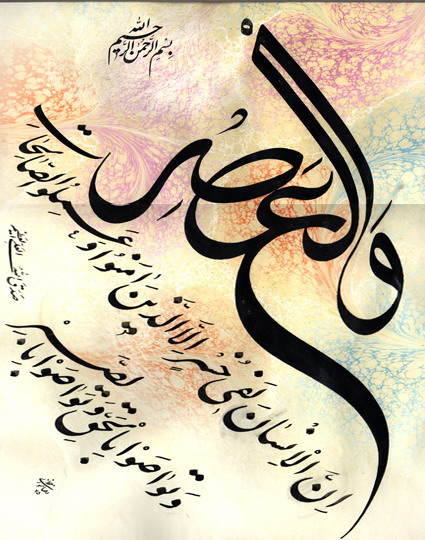 بسم الله الرحمن الرحیم
والعصر
ان الانسان لفی خسر الا الذین امنوا و عملوا الصالحات
و تواصوا بالحق و تواصوا بالصبر
صدق الله العلی العظیم